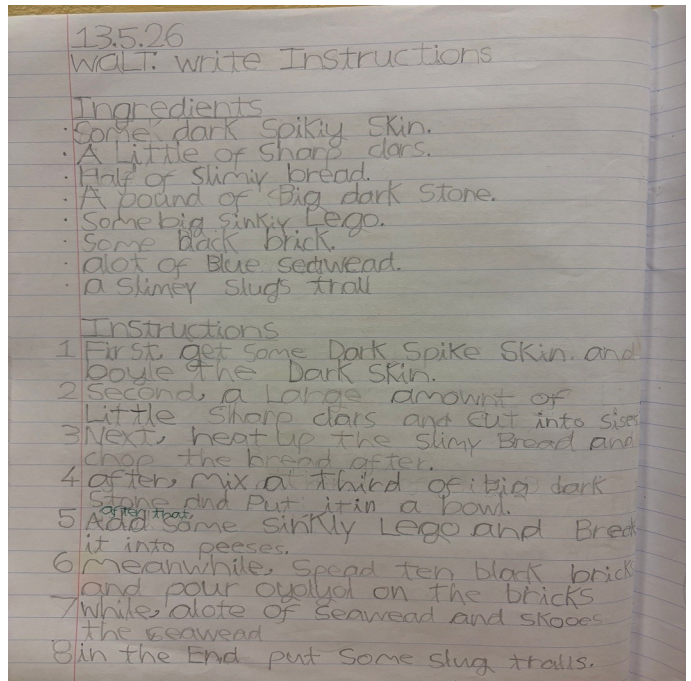 13.5.26
WALT: write Instructions
Ingredients
· Some dark Spikiy Skin.
· A Little of Sharp clars.
· Half of Slimiy bread.
· A pound of Big dark Stone.
· Some big sinkiy Lego.
· Some black brick.
· alot of Blue seawead.
· a Slimey slugs trall
Instructions
1 First, get Some Dark Spike Skin. and
boyle the Dark Skin.
2 Second, a Lange amownt of
Little Sharp clars and cut into sises
3 Next, heat up the slimy Bread and
chop the bread after.
4 after, mix a third of big dark
Stone and Put it in a bowl.
after that,
5 Add Some Sinkly Lego and Break
it into peeses.
6 Meanwhile, Spead ten black bricks
and pour oyolyol on the bricks
7 while, alote of Seawead and skooes
the seawead
8 in the End put Some slug tralls.